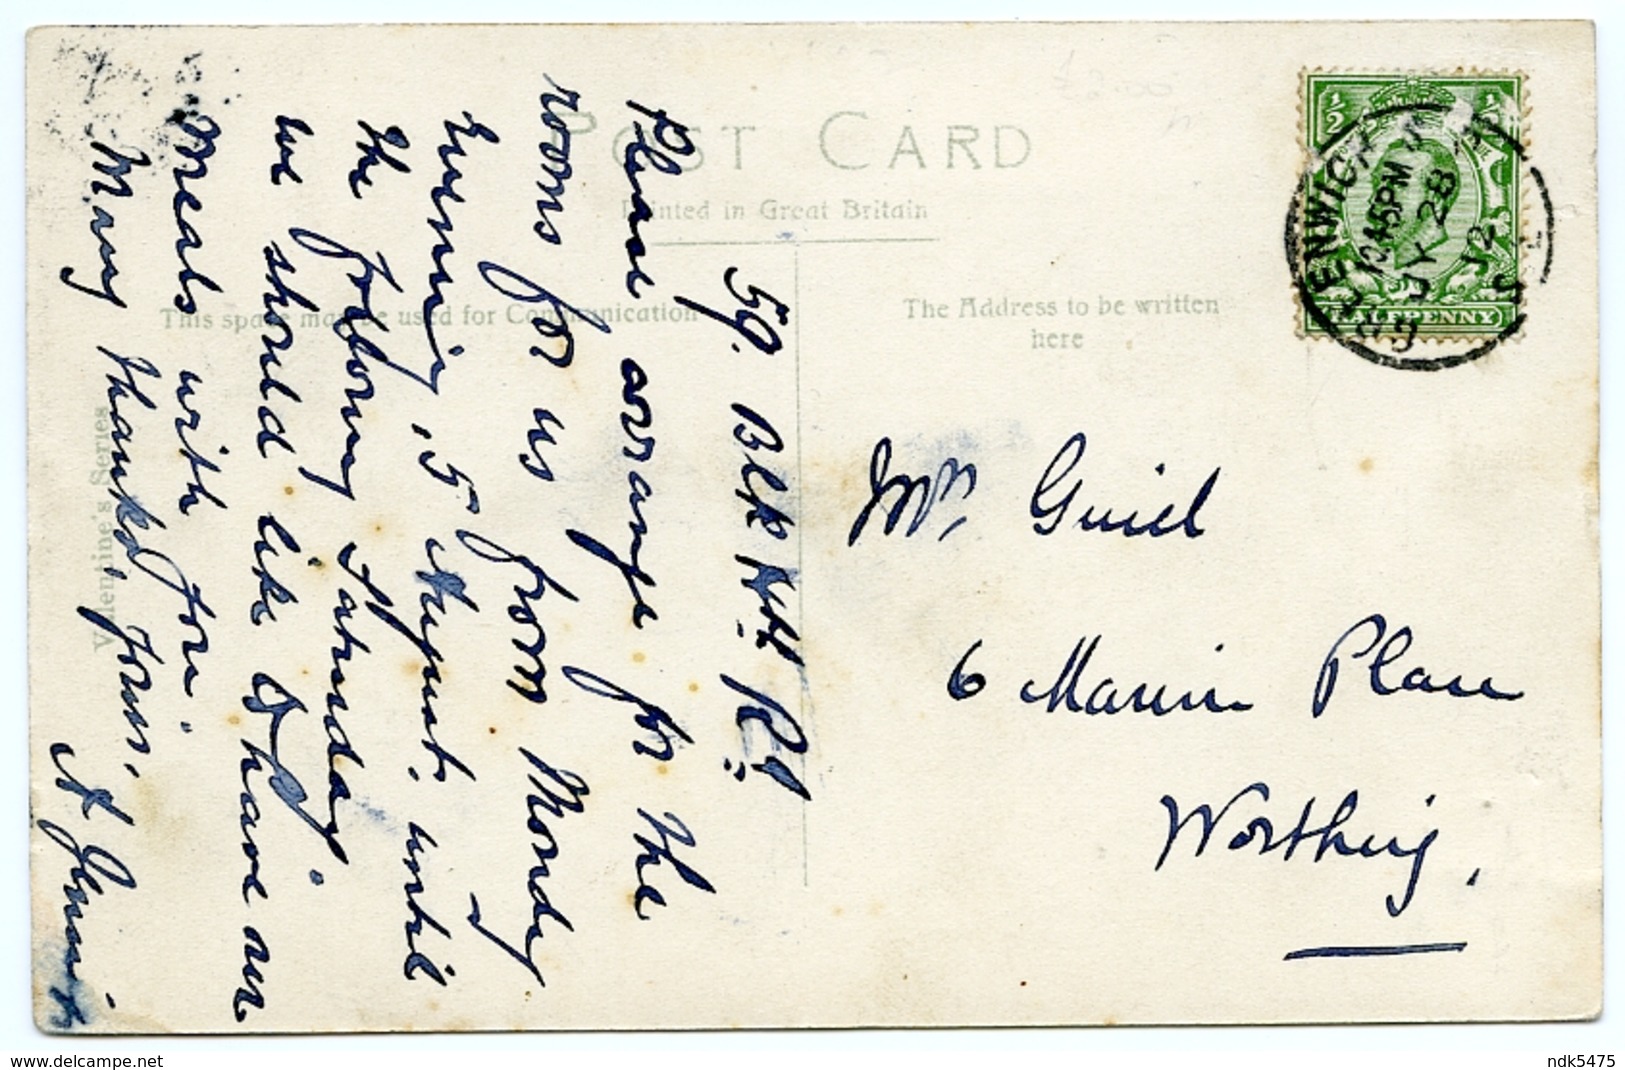 POST CARD
Printed in Great Britain
This space may be used for Communication
The Address to be written
here
Valentine's Series
½ ½
HALFPENNY
GREENWICH
12.45PM
JY 28
12
S.E
59. Blk Hth Rd
Please arrange for the
rooms for us from Monday
Evening, 5 August, until
the following Saturday.
We should like to have our
Meals with you.
Many thanks, yours,
A Jennis
Mrs Guiel
6 Marine Place
Worthing,
delcampe.net
ndk5475